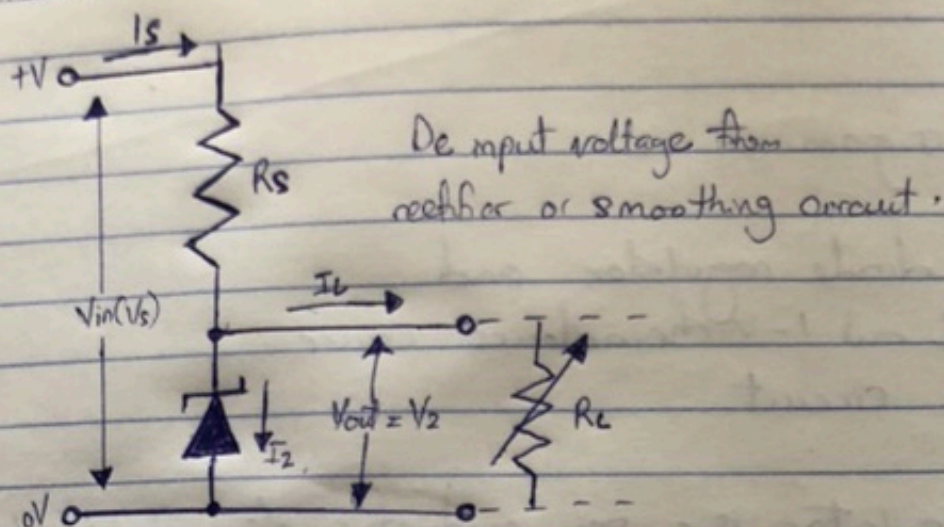 Is
+V
Rs
Dc input voltage from
rectifier or smoothing circuit.
IL
Vin(Vs)
Vout = V2
I2
RL
0V